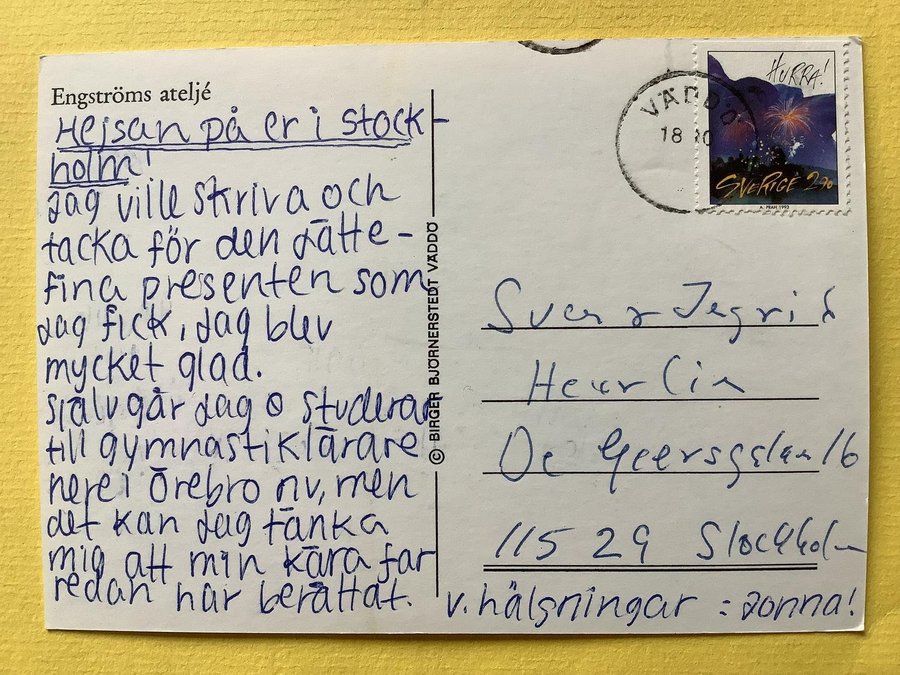 Engströms ateljé
Hejsan på er i stock-
holm!
Jag ville skriva och
tacka för den jätte-
fina presenten som
jag fick, jag blev
mycket glad.
Själv går jag o studerar
till gymnastiklärare
nere i Örebro nv, men
det kan jag tänka
mig att min kära far
redan har berättat.
v. hälsningar = Jonna!
© BIRGER BJÖRNERSTEDT VÄDDÖ
VÄDDÖ
18 10
HURRA!
SVERIGE 2.90
A. PRAH 1993
Sven
Heurlin
De Geersgatan 16
115 29 Stockholm